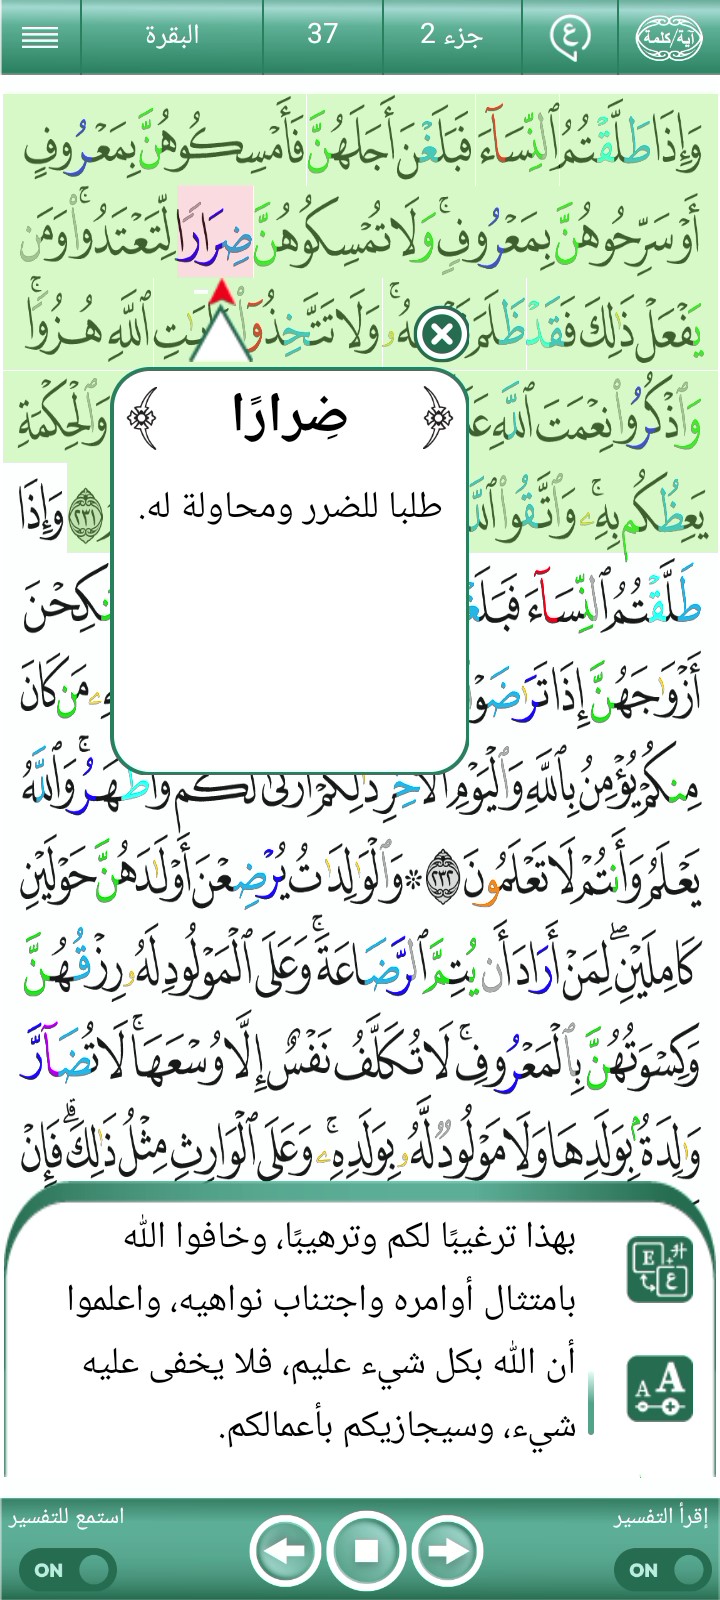 آية/كلمة ع جزء 2 37 البقرة
وَإِذَا طَلَّقْتُمُ ٱلنِّسَآءَ فَبَلَغْنَ أَجَلَهُنَّ فَأَمْسِكُوهُنَّ بِمَعْرُوفٍ
أَوْ سَرِّحُوهُنَّ بِمَعْرُوفٍ ۚ وَلَا تُمْسِكُوهُنَّ ضِرَارًا لِّتَعْتَدُوا۟ ۚ وَمَن
يَفْعَلْ ذَٰلِكَ فَقَدْ ظَلَمَ وَلَا تَتَّخِذُوٓا۟ ٱللَّهِ هُزُوًا ۚ
وَٱذْكُرُوا۟ نِعْمَتَ ٱللَّهِ وَٱلْحِكْمَةِ
يَعِظُكُم بِهِۦ ۚ وَٱتَّقُوا۟ ٢٣١ وَإِذَا
طَلَّقْتُمُ ٱلنِّسَآءَ
أَزْوَٰجَهُنَّ إِذَا مَن كَانَ
مِنكُمْ يُؤْمِنُ بِٱللَّهِ وَٱلْيَوْمِ وَٱللَّهُ
يَعْلَمُ وَأَنتُمْ لَا تَعْلَمُونَ ٢٣٢ * وَٱلْوَٰلِدَٰتُ يُرْضِعْنَ أَوْلَٰدَهُنَّ حَوْلَيْنِ
كَامِلَيْنِ ۖ لِمَنْ أَرَادَ أَن يُتِمَّ ٱلرَّضَاعَةَ ۚ وَعَلَى ٱلْمَوْلُودِ لَهُۥ رِزْقُهُنَّ
وَكِسْوَتُهُنَّ بِٱلْمَعْرُوفِ ۚ لَا تُكَلَّفُ نَفْسٌ إِلَّا وُسْعَهَا ۚ لَا تُضَآرَّ
وَٰلِدَةٌۢ بِوَلَدِهَا وَلَا مَوْلُودٌ لَّهُۥ بِوَلَدِهِۦ ۚ وَعَلَى ٱلْوَارِثِ مِثْلُ ذَٰلِكَ ۗ فَإِنْ
ضِرارًا
طلبا للضرر ومحاولة له.
بهذا ترغيبًا لكم وترهيبًا، وخافوا الله
بامتثال أوامره واجتناب نواهيه، واعلموا
أن الله بكل شيء عليم، فلا يخفى عليه
شيء، وسيجازيكم بأعمالكم.
إقرأ التفسير استمع للتفسير
ON ON